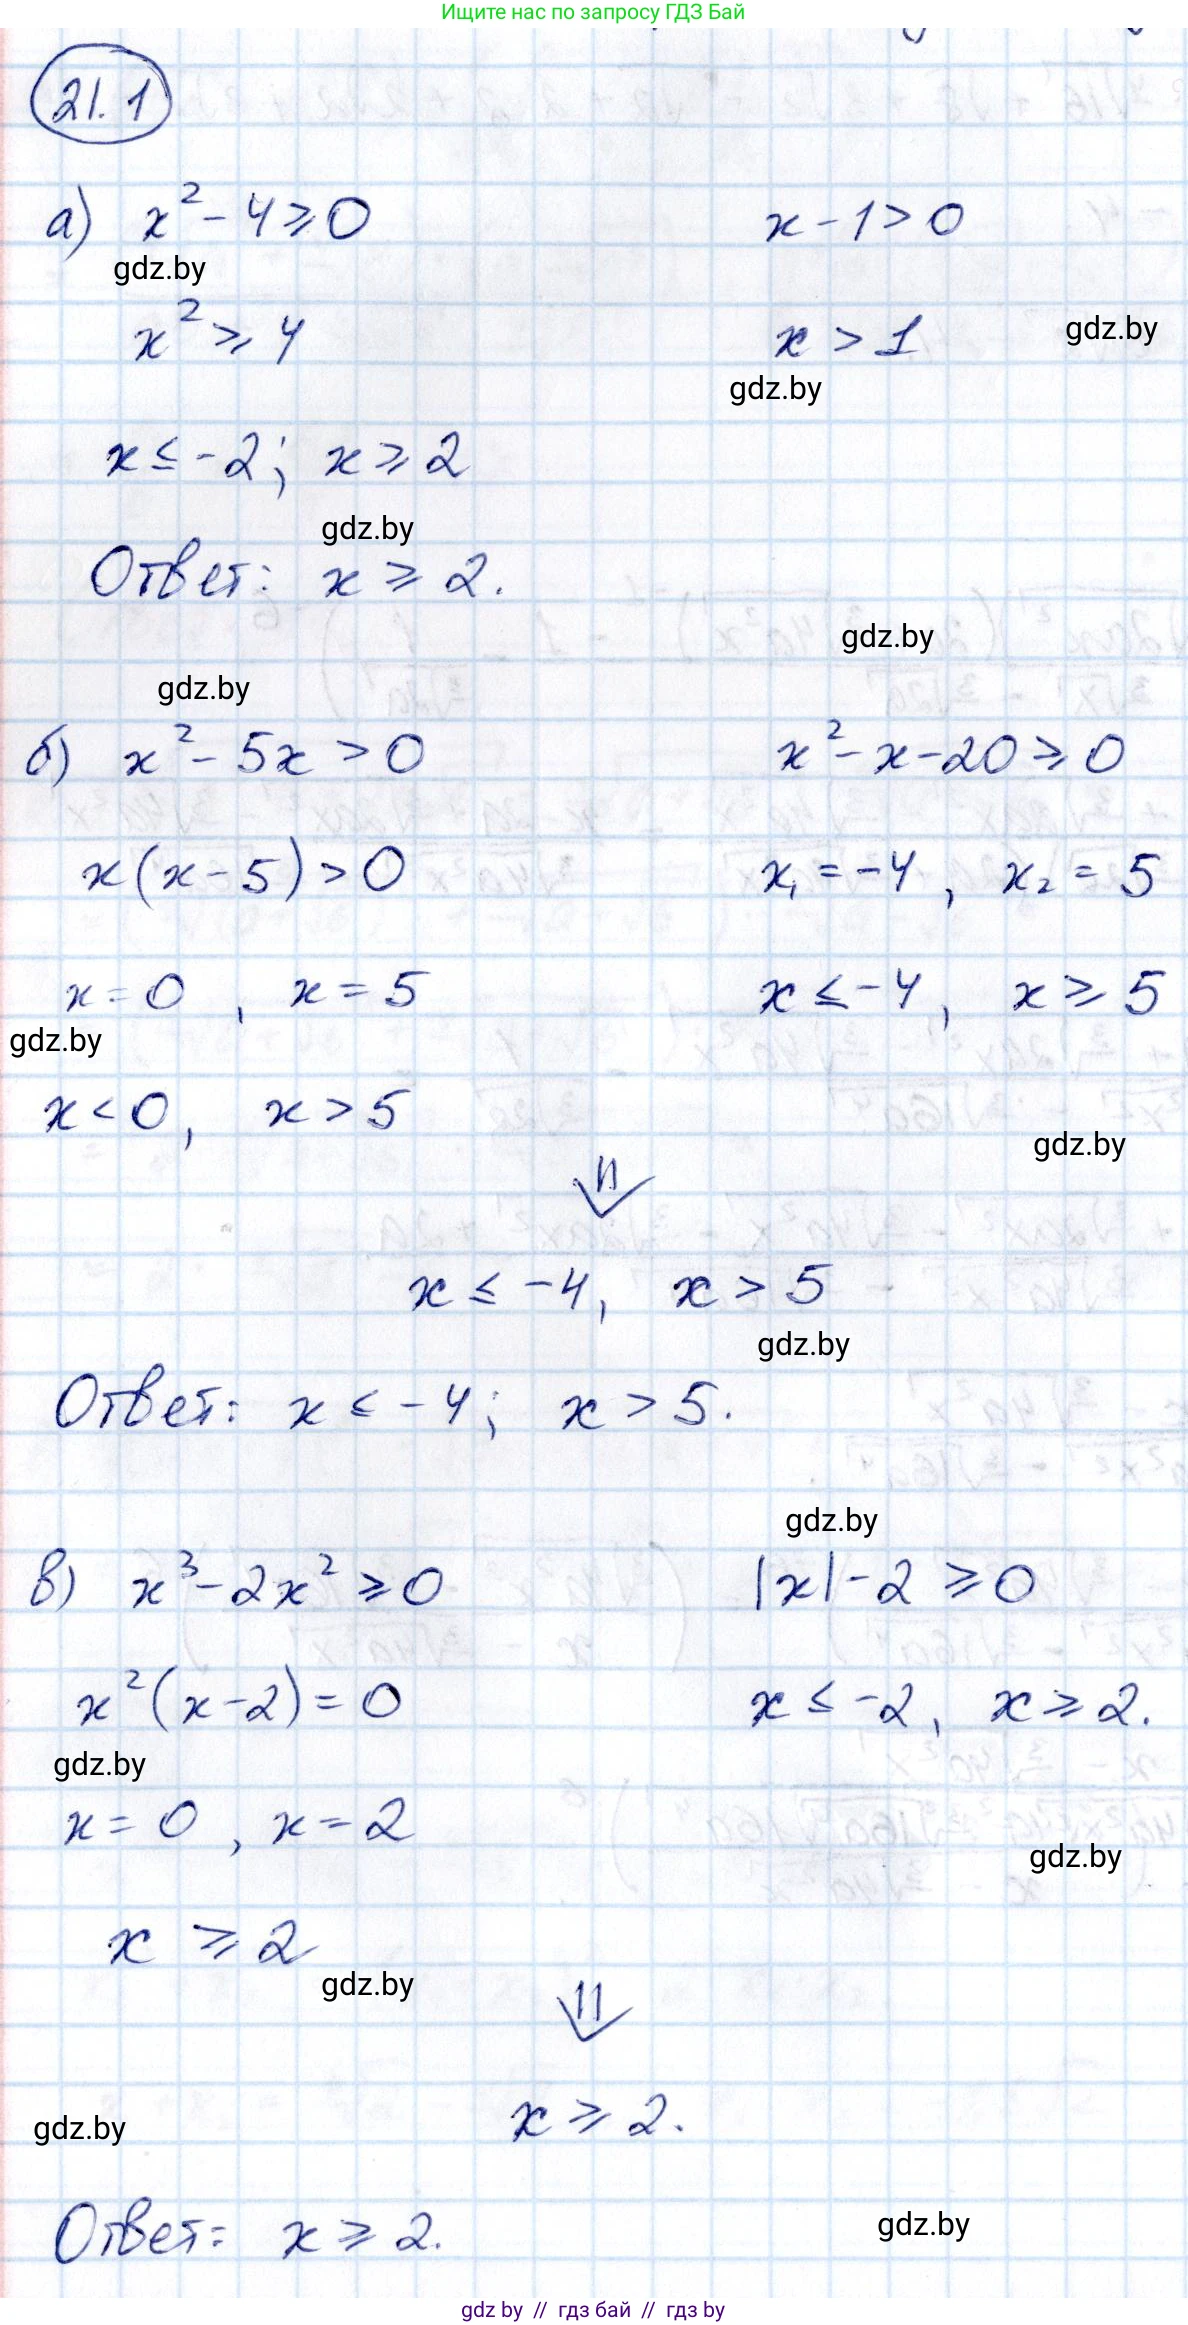 Ищите нас по запросу ГДЗ Бай
21.1
а) x² - 4 ≥ 0    x - 1 > 0
gdz.by
x² ≥ 4    x > 1
gdz.by
gdz.by
x ≤ -2; x ≥ 2
gdz.by
Ответ: x ≥ 2.
gdz.by
gdz.by
б) x² - 5x > 0    x² - x - 20 ≥ 0
x(x - 5) > 0    x₁ = -4, x₂ = 5
x = 0, x = 5    x ≤ -4, x ≥ 5
gdz.by
x < 0, x > 5
gdz.by
x ≤ -4, x > 5
gdz.by
Ответ: x ≤ -4; x > 5.
gdz.by
в) x³ - 2x² ≥ 0    |x| - 2 ≥ 0
x²(x - 2) = 0    x ≤ -2, x ≥ 2.
gdz.by
x = 0, x = 2
gdz.by
x ≥ 2
gdz.by
x ≥ 2.
gdz.by
Ответ: x ≥ 2.
gdz.by
gdz by // гдз бай // гдз by